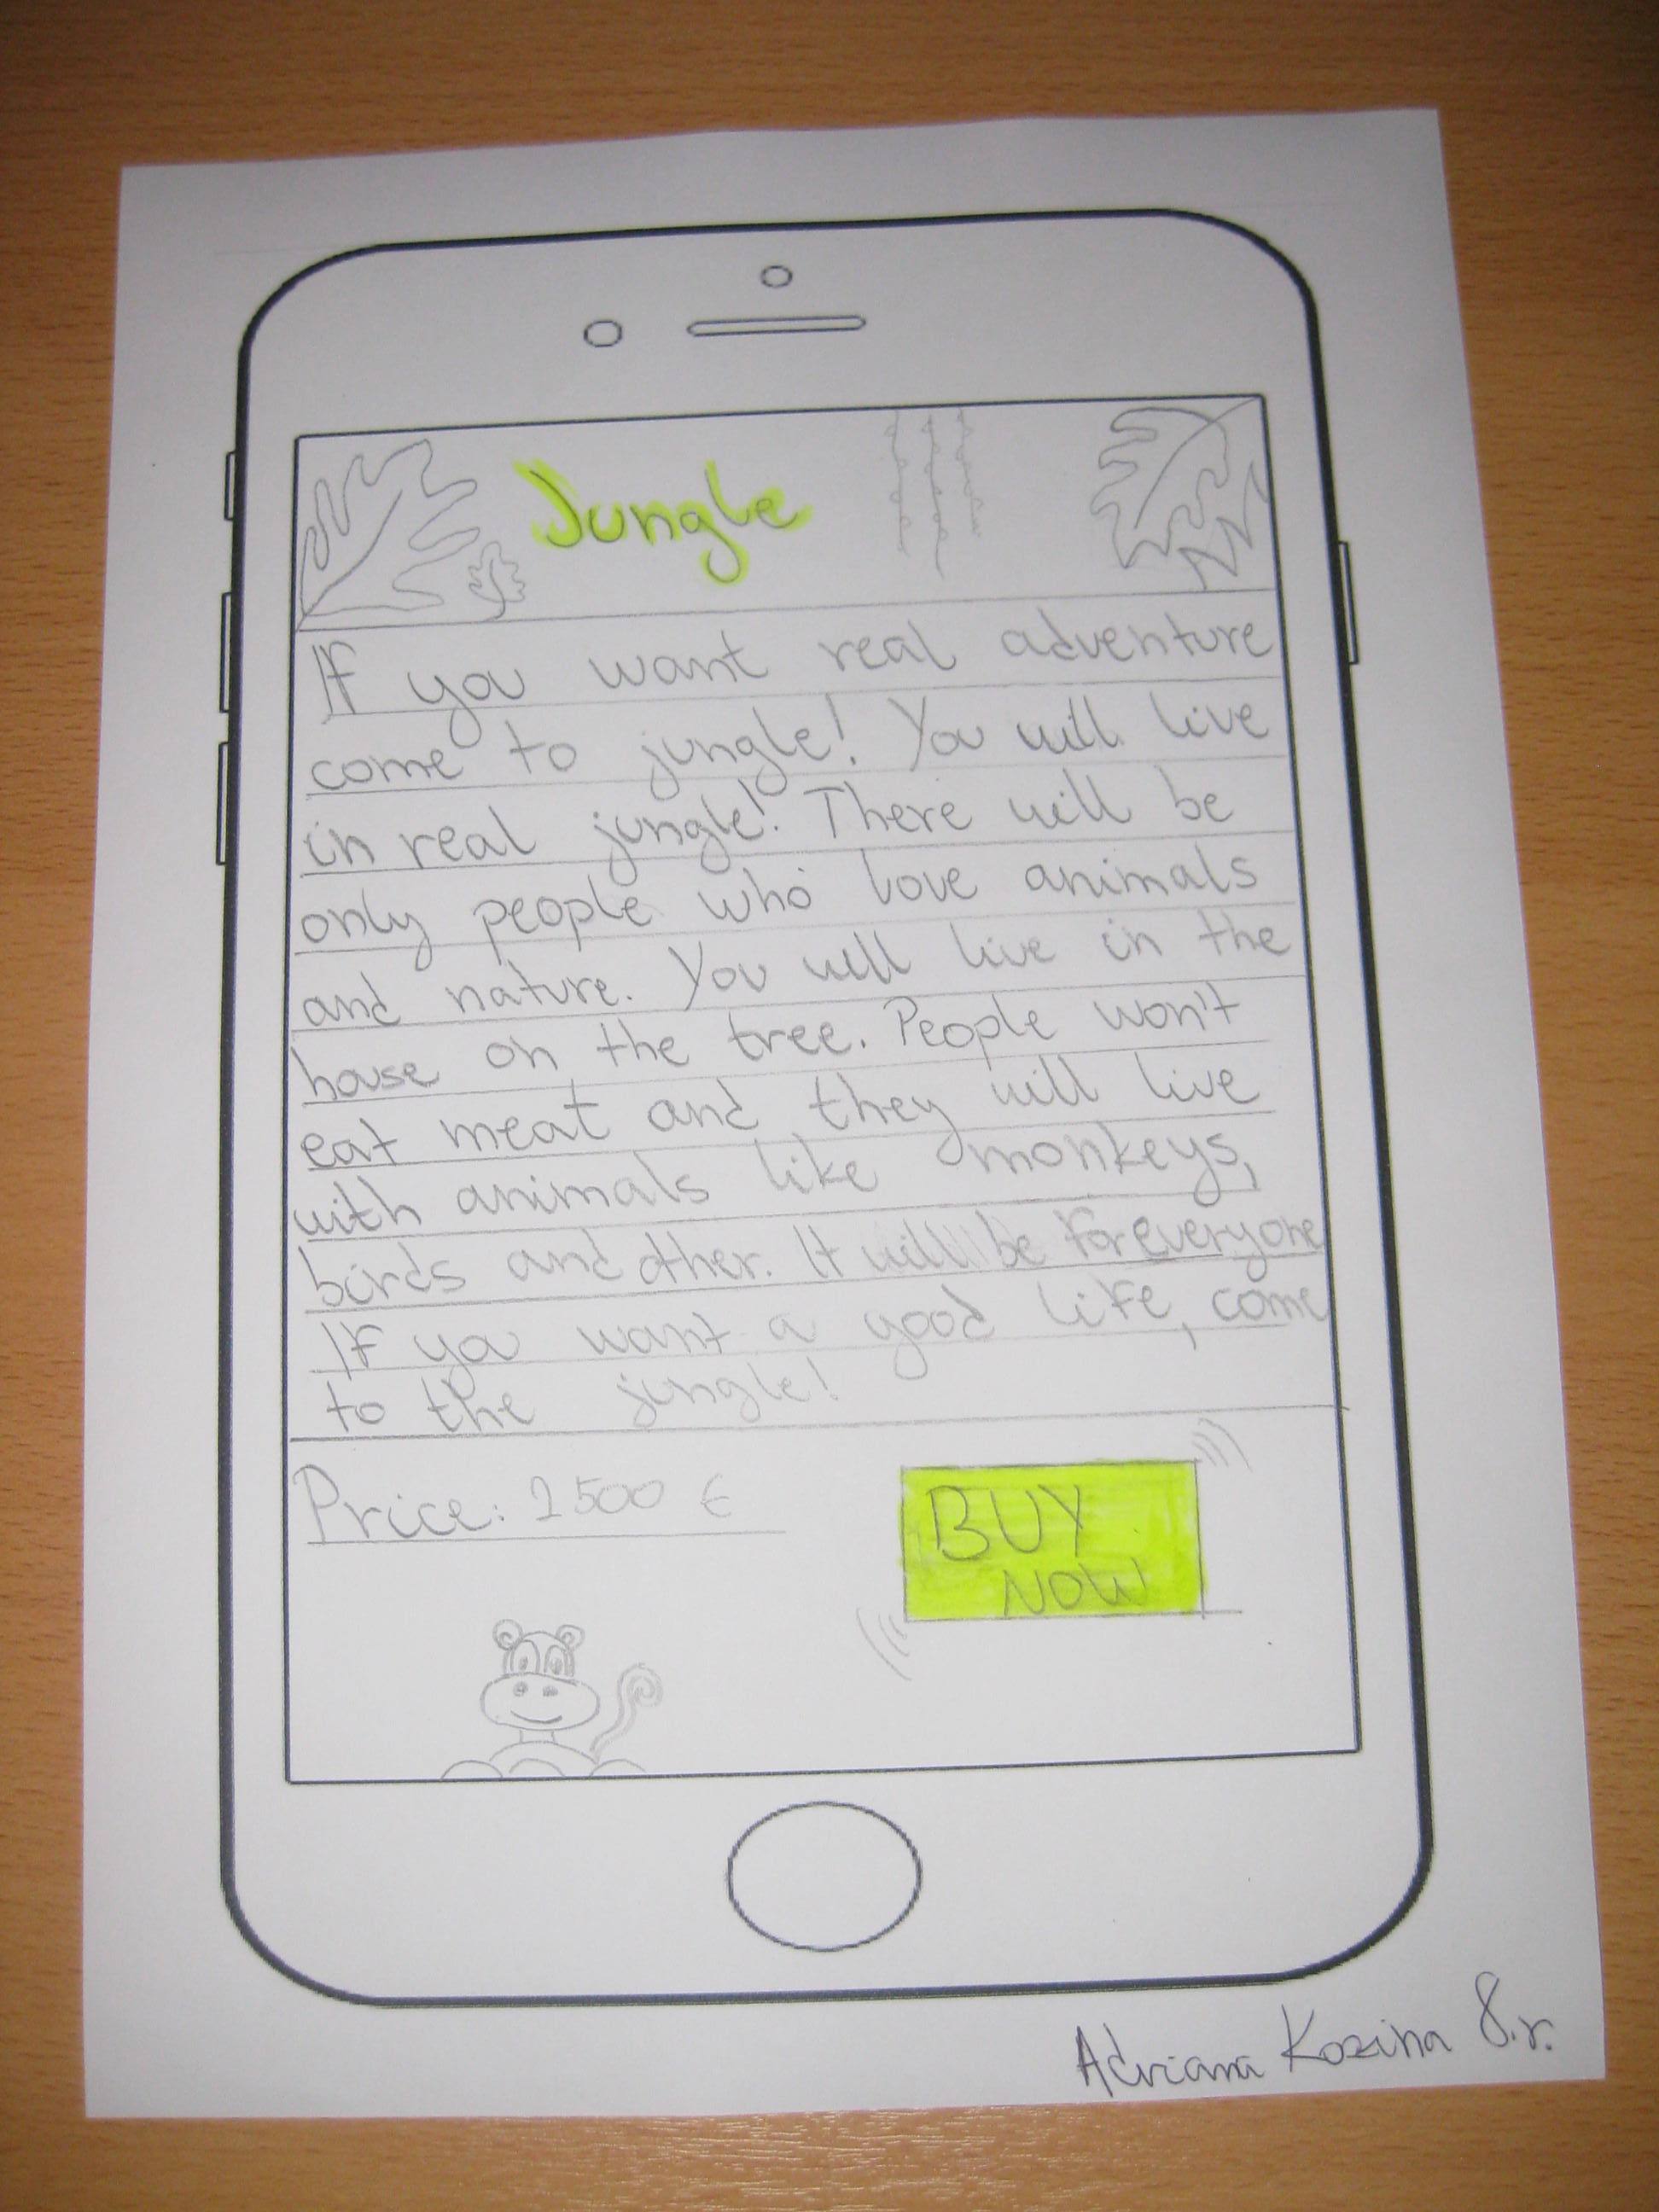 Jungle
If you want real adventure
come to jungle! You will live
in real jungle! There will be
only people who love animals
and nature. You will live in the
house on the tree. People won't
eat meat and they will live
with animals like monkeys,
birds and other. It will be for everyone
If you want a good life, come
to the jungle!
Price: 2500 €
BUY
NOW
Adriana Kozina 8.r.